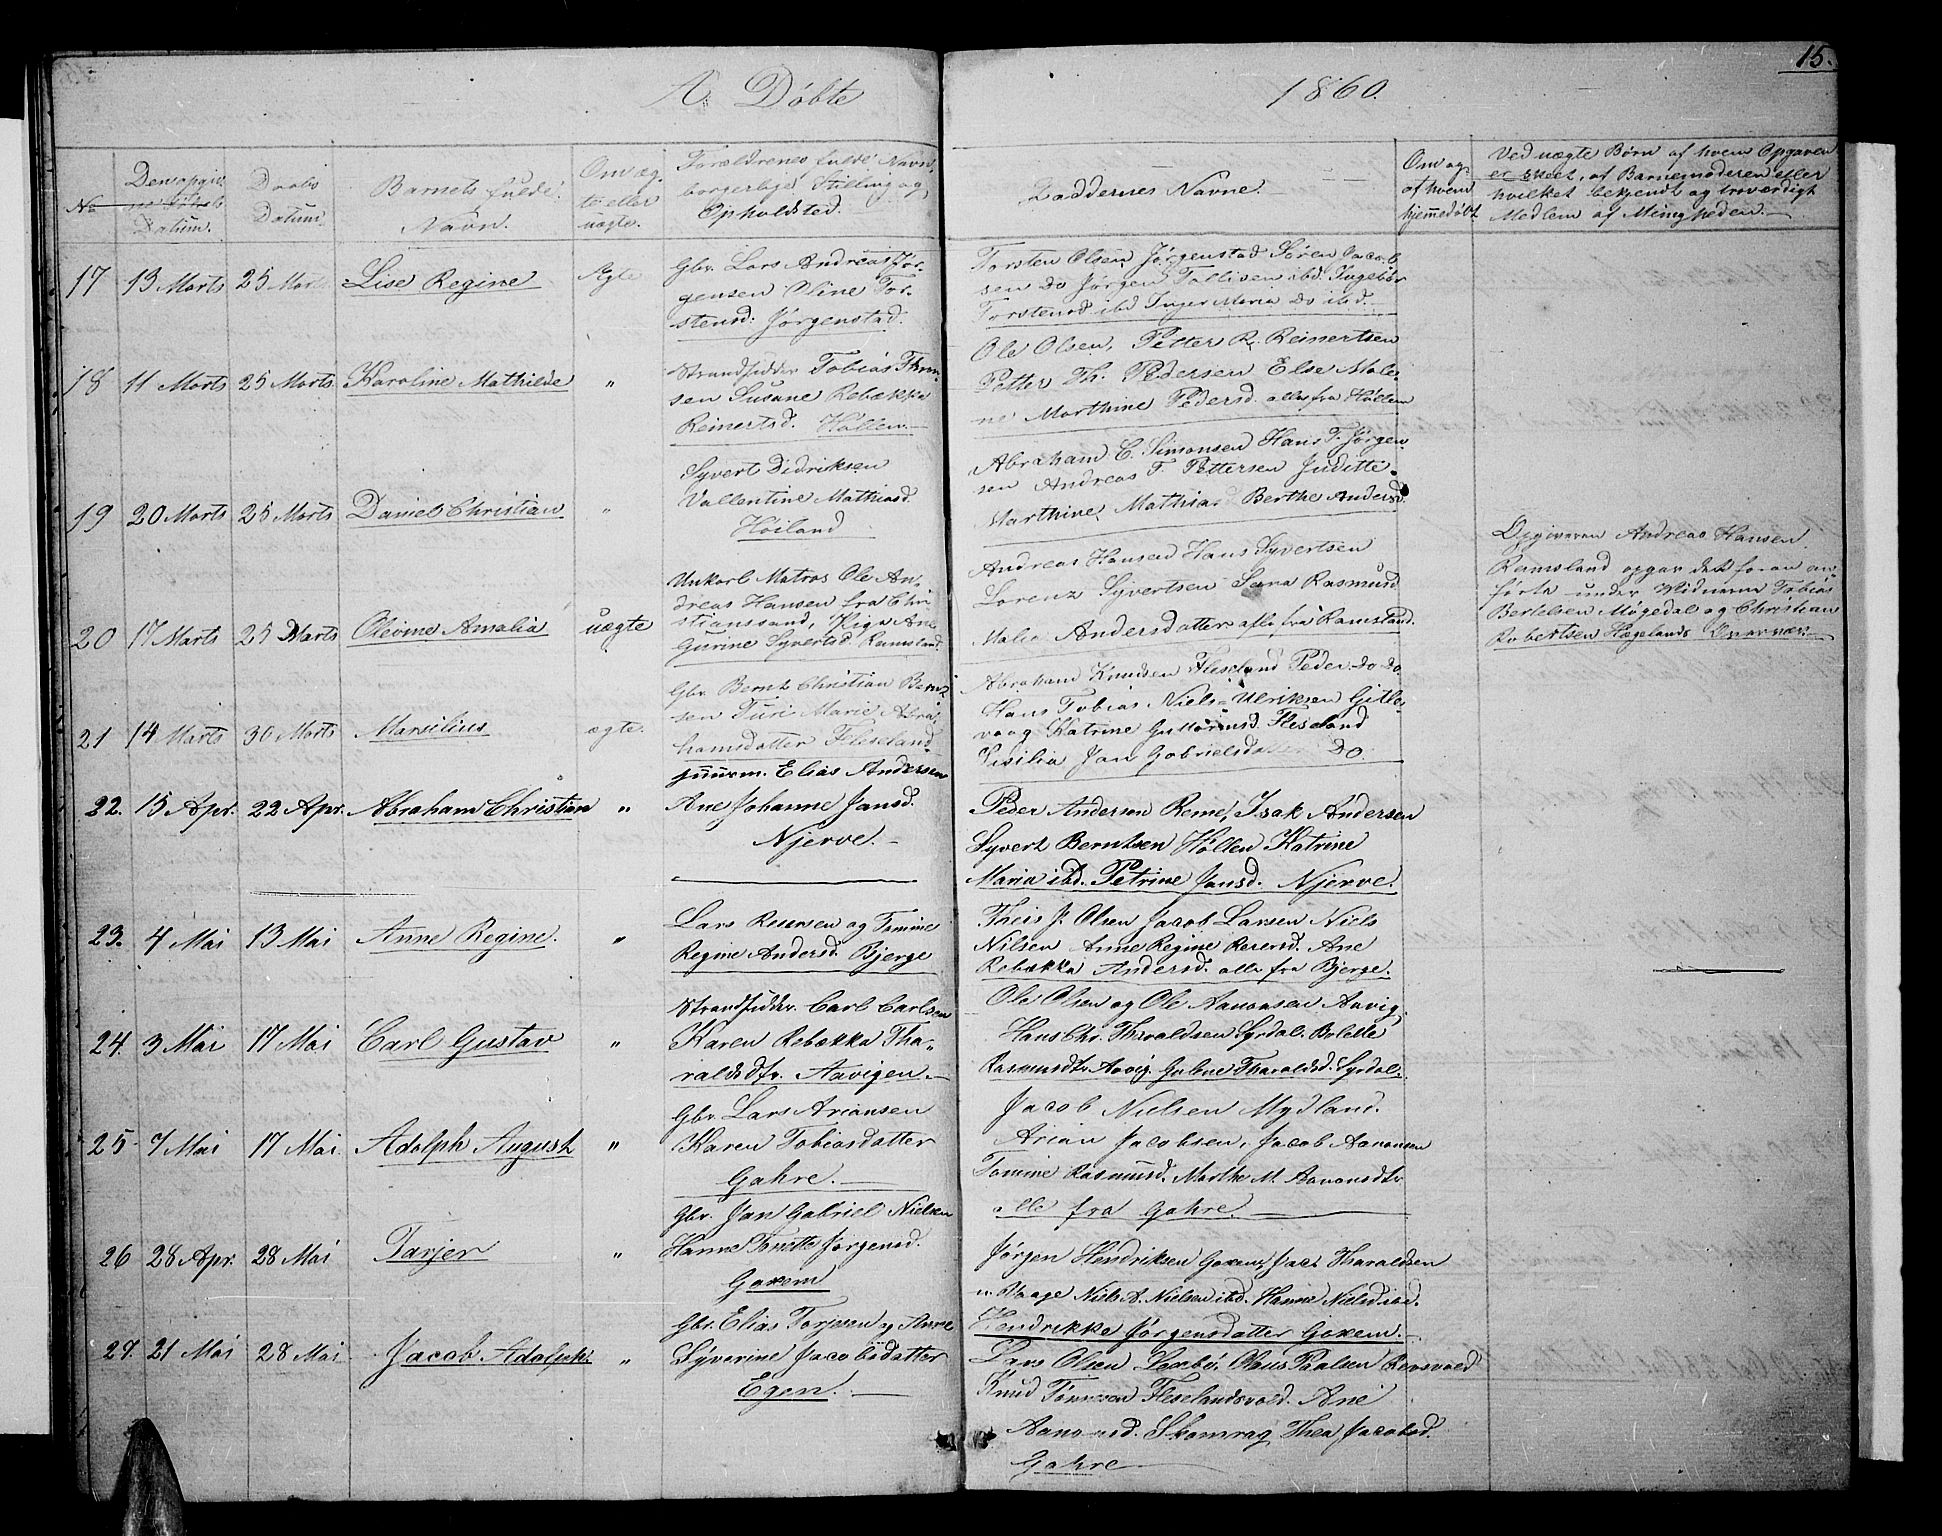 15.
A. Døbte
1860.
No
Den opgiv-
ne Føds.
Datum.
Daabs
Datum.
Barnets fulde
Navn.
Om æg-
te eller
uægte.
Forældrenes fulde Navn,
borgerlige Stilling og
Opholdsted.
Faddernes Navne.
Om og
af hvem
hjemmedøbt.
Ved uægte Børn af hvem Opgaven
er skeet, af Barnemoderen eller
hvilket bekjendt og troværdigt
Medlem af Menigheden.
17
13 Marts
25 Marts
Lise Regine
Ægte
Gbr. Lars Andreas Jør-
gensen Oline Tor-
stensd: Jørgenstad.
Torsten Olsen Jørgenstad Søren Jacob-
sen do Jørgen Tollisen ibd. Ingebor
Torstensd ibd Inger Maria do ibd
18
11 Marts
25 Marts
Karoline Mathilde
"
Strandsidder Tobias Thom-
sen Susane Rebækka
Reinertsd. Høllen.
Ole Olsen, Petter R. Reinertsen
Petter Th. Pedersen Else Male-
ne Marthine Pedersd. alle fra Høllen
19
20 Marts
25 Marts
Daniel Christian
"
Syvert Didriksen
Vallentine Mathiasd.
Høiland
Abraham C. Simonsen Hans T. Jørgen-
sen Andreas T. Pettersen Juditte
Marthine Mathiasd Berthe Andersd.
20
17 Marts
25 Marts
Olevine Amalia
uægte
Unkarl Matros Ole An-
dreas Hansen fra Chri
stianssand, Pige Ane
Gurine Syvertsd. Ramsland
Andreas Hansen Hans Syvertsen
Lorenz Syvertsen Sara Rasmusd
Malie Andersdatter alle fra Ramsland.
Opgiveren Andreas Hansen
Ramsland opgav det foran an-
førte under Vidnerne Tobias
Bertelsen Møgedal og Christian
Robertsen Hægelands Overvær.
21
14 Marts
30 Marts
Marsilius
ægte.
Gbr. Bernt Christian Bernt
sen Turi Marie Abra-
hamsdatter Fleseland
Abraham Knudsen Fleseland Peder do do
Hans Tobias Niels-Ulriksen Gitle-
vaag Katrine Guttormsd Fleseland
Sisilia Jan Gabrielsdatter do.
22.
15 Apr.
22 Apr.
Abraham Christian
"
Elias Andersen
Ane Johanne Jansd.
Njerve.
Peder Anderson Reme, Isak Andersen
Syvert Berntsen Høllen Katrine
Maria ibd. Petrine Jansd. Njerve.
23.
4 Mai
13 Mai
Anne Regine.
"
Lars Reiersen og Tomine
Regine Andersd. Bjerge
Theis J. Olsen Jacob Larsen Niels
Nilsen Anne Regine Reiersd. Ane
Rebækka Andersd. alle fra Bjerge.
24.
3 Mai
17 Mai
Carl Gustav
"
Strandsidder Carl Carlsen
Karen Rebækka Tha-
raldsdtr. Aavigen.
Ole Olsen og Ole Aanonsen Aavig.
Hans Chr. Tharaldsen Syrdal. Bolette
Rasmusdtr. Aavig. Guline Tharaldsd. Syrdal.
25
7 Mai
17 Mai.
Adolph August
"
Gbr. Lars Ariansen
Karen Tobiasdatter
Gahre.
Jacob Nielsen Mydland.
Arian Jacobsen, Jacob Aanonsen
Tomine Rasmusd. Marthe M. Aanonsdtr
alle fra Gahre.
26
28 Apr.
28 Mai
Tarjer
"
Gbr. Jan Gabriel Nielsen
Hanne Tonette Jørgensd.
Goxem
Jørgen Hendriksen Goxem, Jacb Tharaldsen
Vaage Niels A. Nielsen ibd. Hanne Nielsd ibd.
Hendrikke Jørgensdatter Goxem.
27.
21 Mai
28 Mai
Jacob Adolph
"
Gbr. Elias Torjusen og Anne
Syverine Jacobsdatter
Egen.
Lars Olsen Claus Paalsen
Knud Tønnesen Fleselandsvold. Ane
Aanonsd. Skamrag Thea Jacobsd.
Gahre